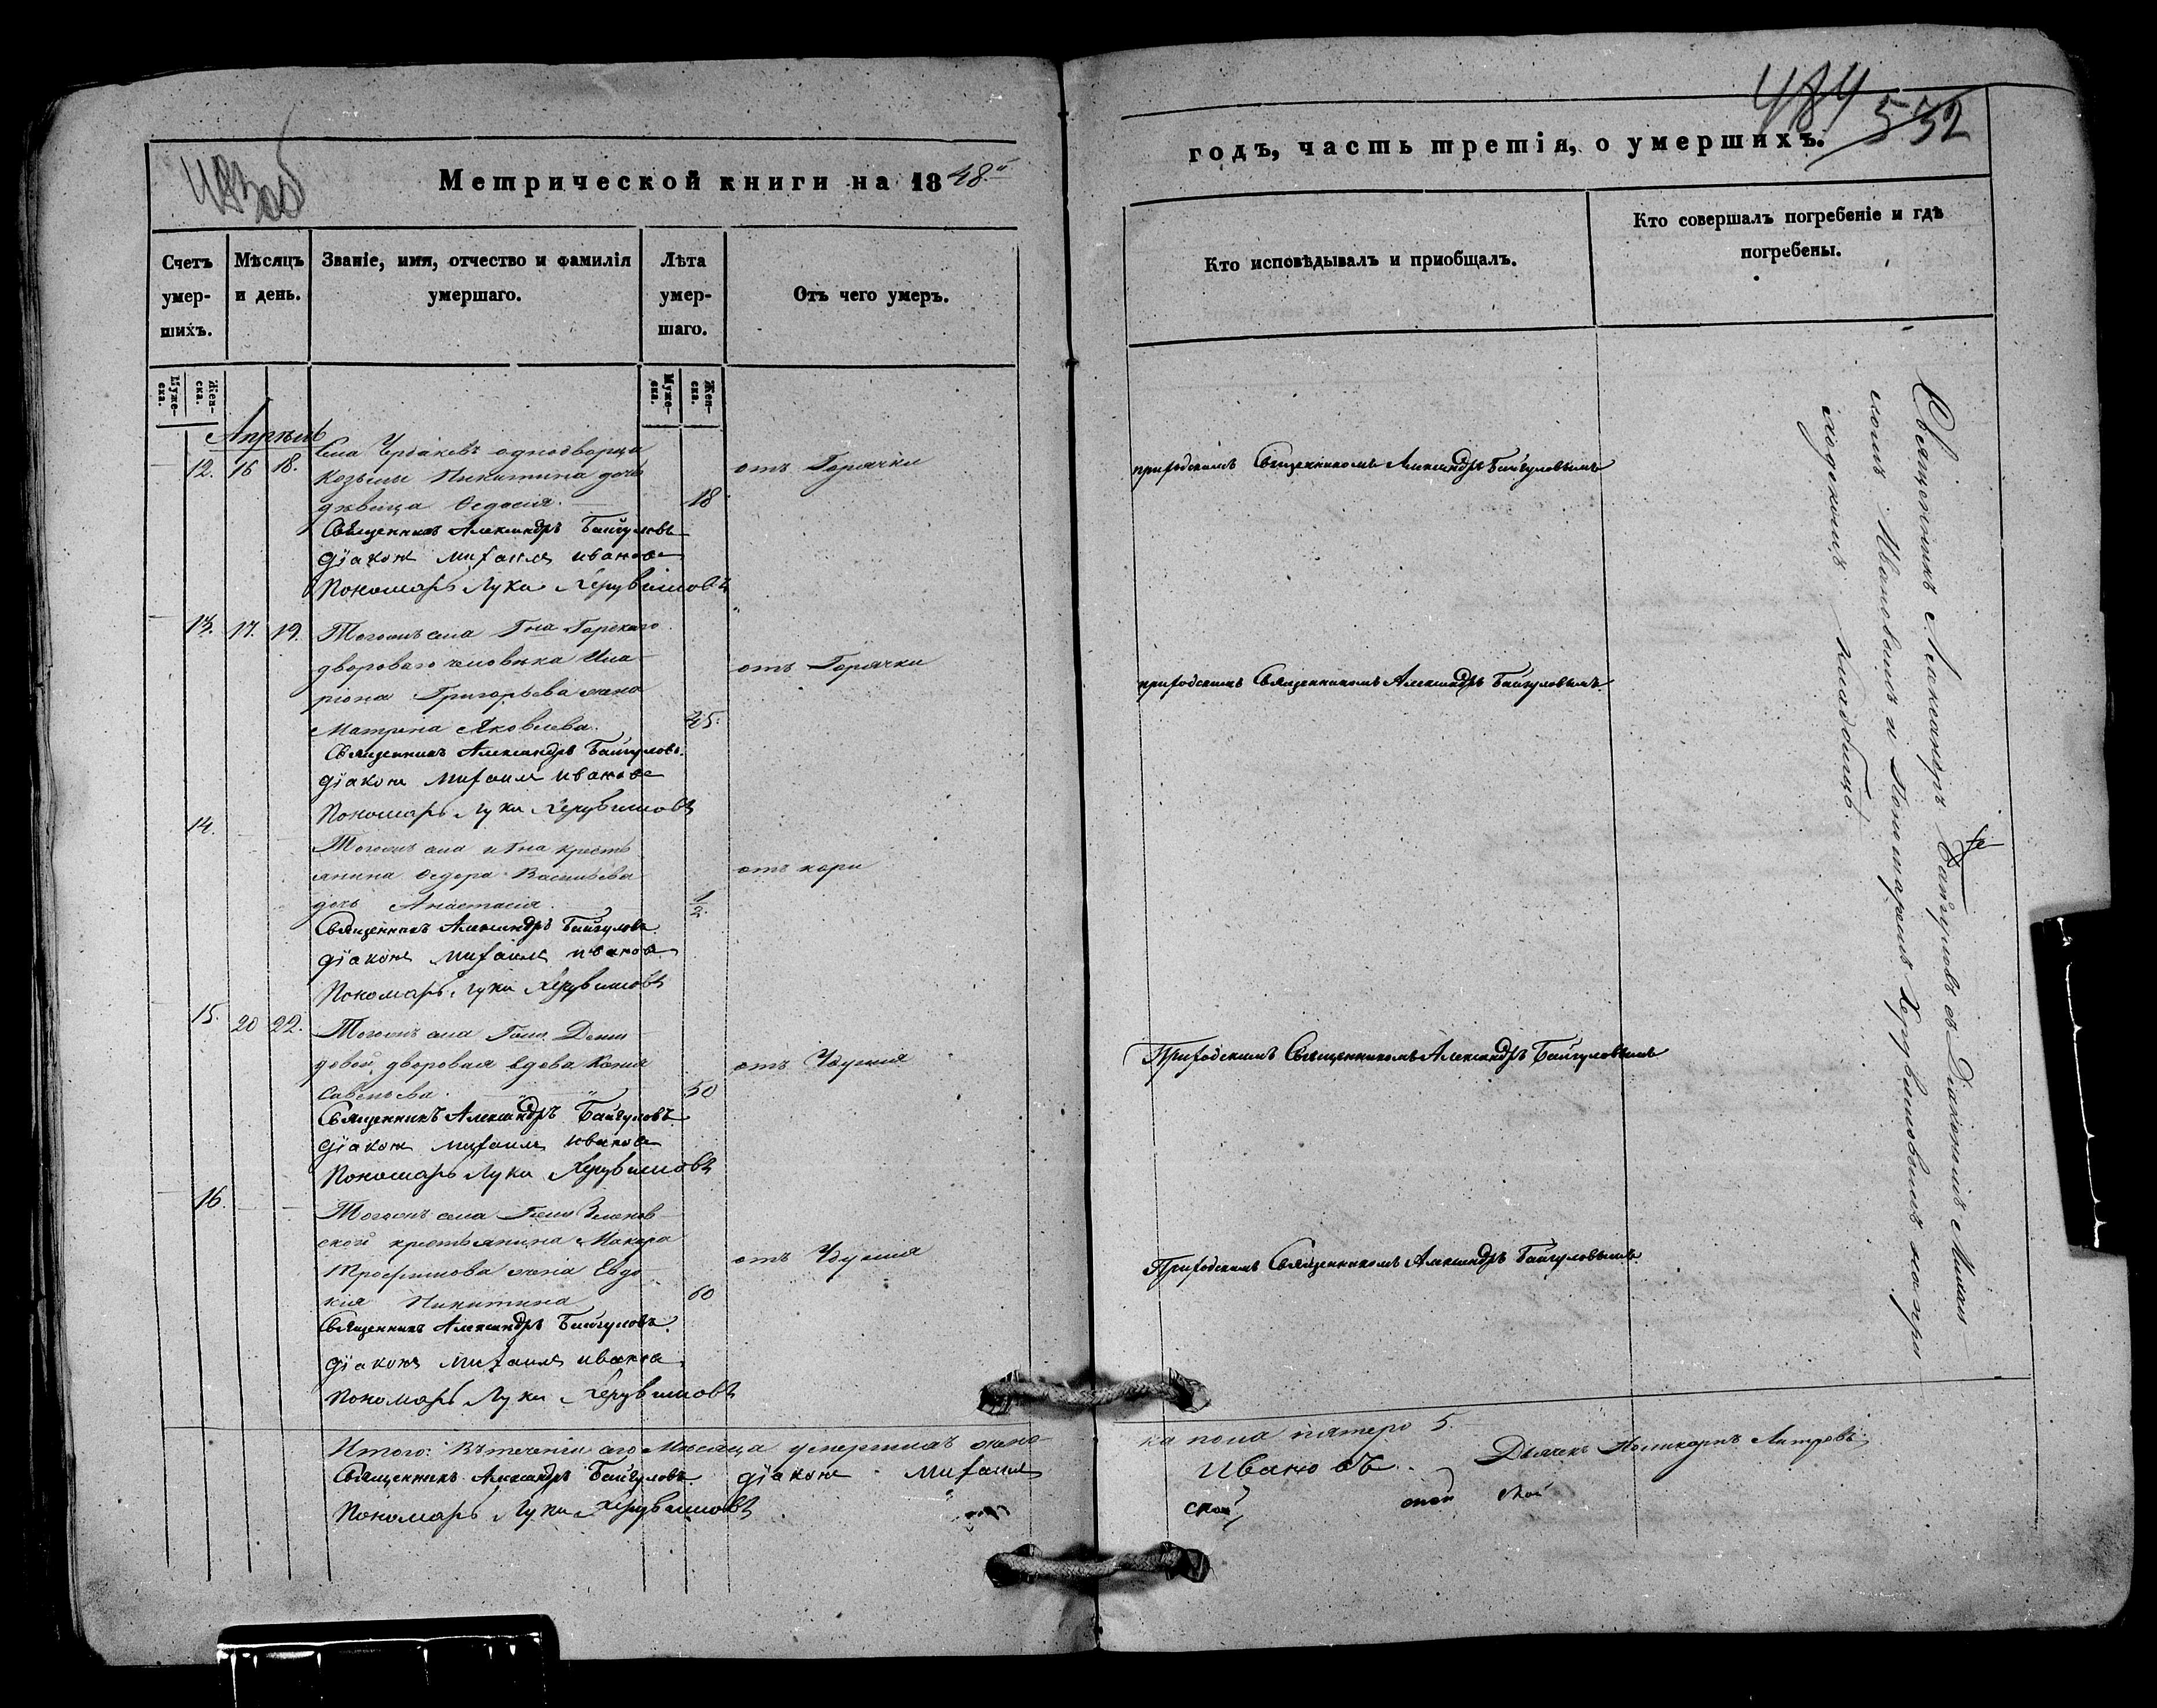 483 об
Метрической книги на 1848й
Счетъ умер-шихъ.
Мѣсяцъ и день.
Званіе, имя, отчество и фамилія умершаго.
Лѣта умер-шаго.
Отъ чего умеръ.
Муже-ска.
Жен-ска.
Муже-ска.
Жен-ска.
Апрѣль
12. 16 18.
Села однодворца
Козьмы Никитина дочь
дѣвица Ѳедосія. 18
отъ Горячки
Священникъ Александръ Байгуловъ
Діаконъ Михаилъ Ивановъ
Пономарь Лука Херувимовъ
13. 17. 19.
Тогожъ села Гна Горскаго
двороваго человѣка Ила-
ріона Григорьева жена
Матрена Яковлева. 45.
отъ Горячки
Священникъ Александръ Байгуловъ.
Діаконъ Михаилъ Ивановъ
Пономарь Лука Херувимовъ
14.
Тогожъ села и Гна кресть-
янина Ѳедора Васильева
дочь Анастасія. 1/2.
отъ кори
Священникъ Александръ Байгуловъ
Діаконъ Михаилъ Ивановъ
Пономарь Лука Херувимовъ
15. 20 22.
Тогожъ села Гжи Деми-
довой, дворовая вдова
Савельева. 50
отъ Удушья
Священникъ Александръ Байгуловъ
Діаконъ Михаилъ Ивановъ
Пономарь Лука Херувимовъ
16.
Тогожъ села Гжи
ской крестьянина Макара
Трофимова жена Евдо-
кія Никитина 60
отъ Удушья
Священникъ Александръ Байгуловъ.
Діаконъ Михаилъ Ивановъ
Пономарь Лука Херувимовъ
Итого: Въ теченіи сего Мѣсяца умершихъ женс-
Священникъ Александръ Байгуловъ Діаконъ Михаилъ
Пономарь Лука Херувимовъ
484 532
годъ, часть третія, о умершихъ.
Кто исповѣдывалъ и приобщалъ.
Кто совершалъ погребеніе и гдѣ погребены.
приходскимъ Священникомъ Александръ Байгуловымъ
приходскимъ Священникомъ Александръ Байгуловымъ
Приходскимъ Священникомъ Александръ Байгуловымъ
Приходскимъ Священникомъ Александръ Байгуловымъ.
Священникъ Александръ Байгуловъ съ Діакономъ Михаи-
ломъ Ивановымъ и Пономаремъ Херувимовымъ на при-
ходскомъ кладбищѣ
ка пола пятеро 5.
Ивановъ. Дьячекъ Поликарпъ
ской